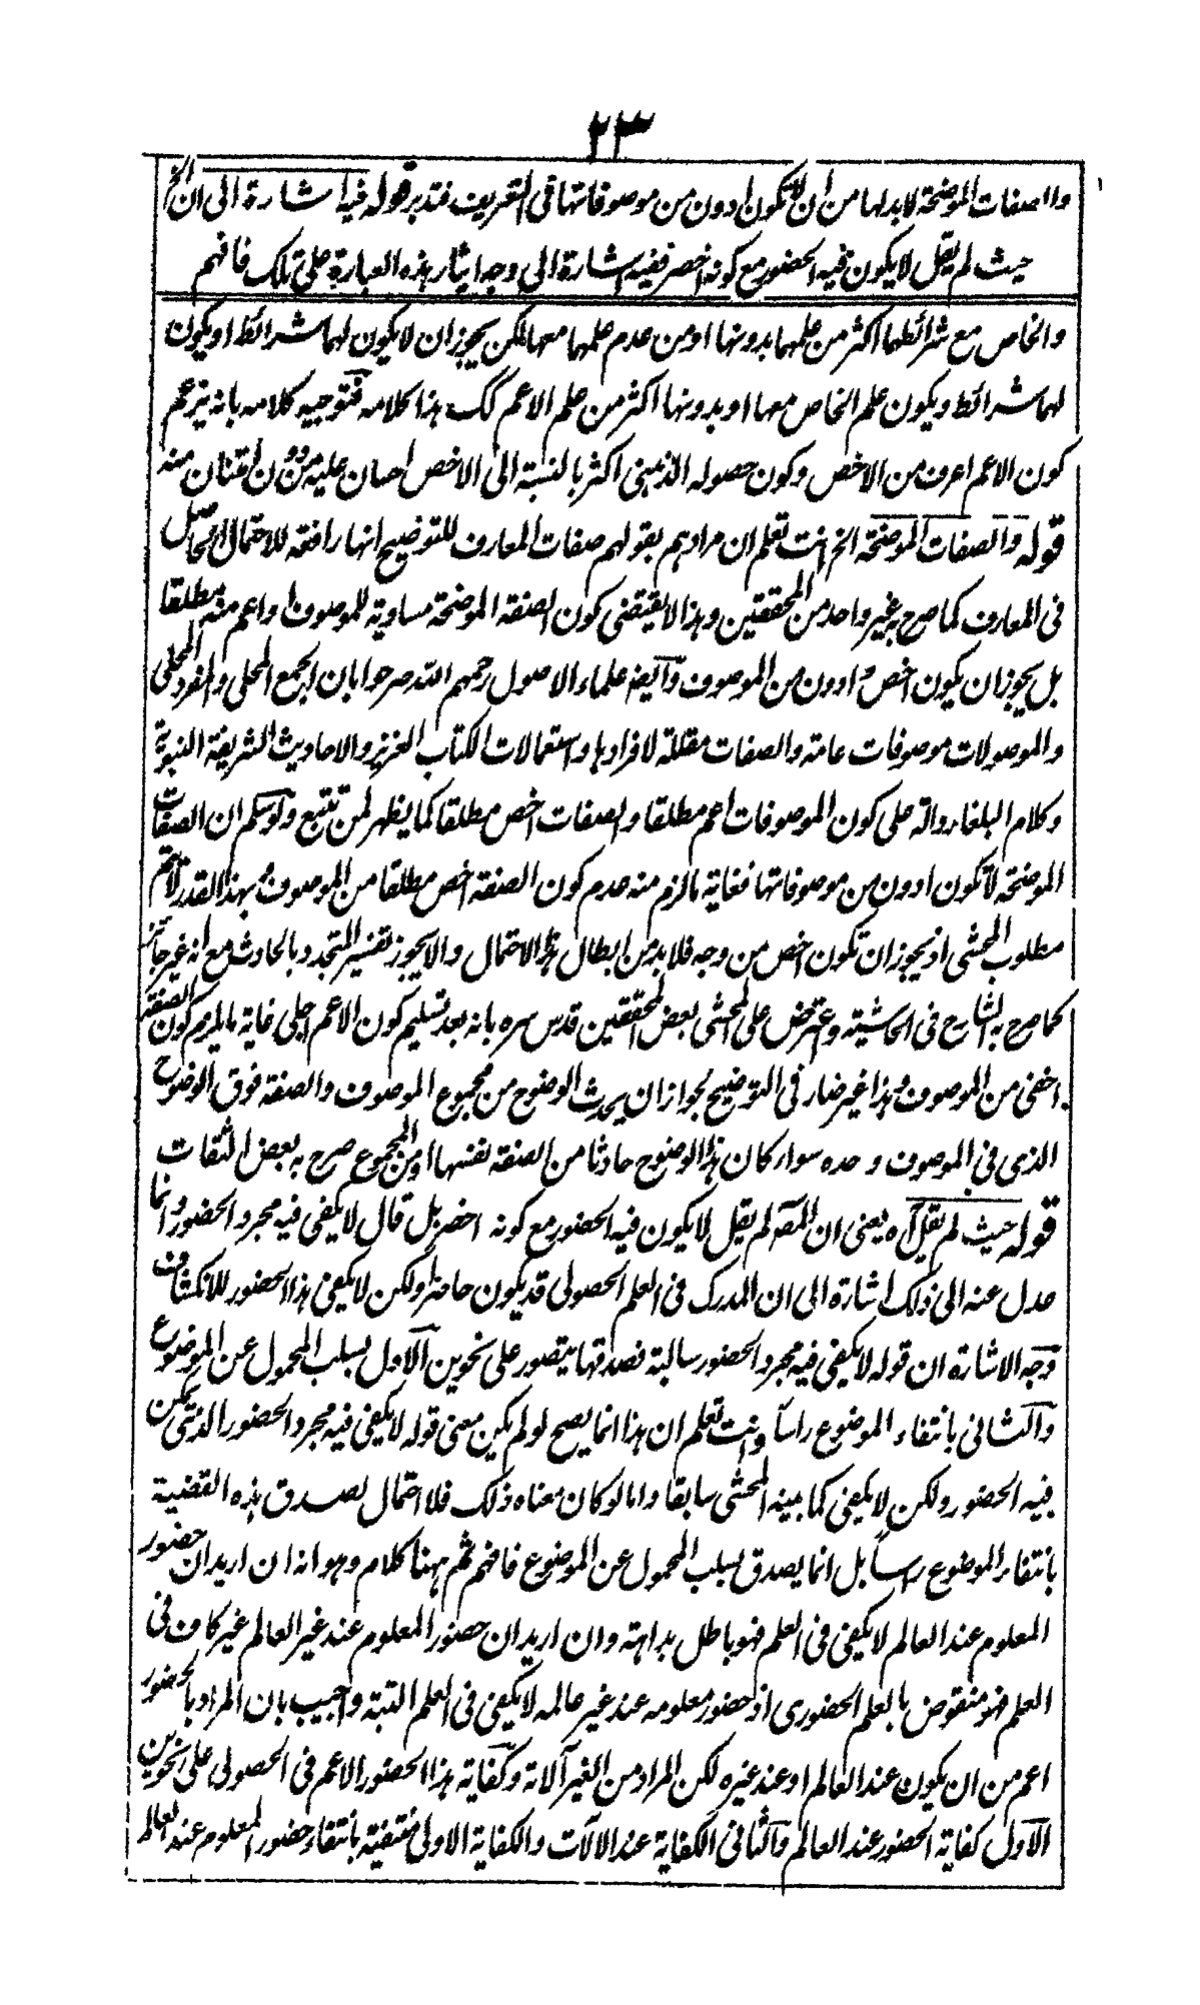 ٢٣
والصفات الموضحة لا بد لها من ان لا تكون ادون من موصوفاتها فى التعريف فتدبر قوله فيه اشارة الى ان الخ
حيث لم يقل لا يكون فيه الحضور مع كونه اخصر ففيه اشارة الى وجه ايثار هذه العبارة على تلك فافهم
والخاص مع شرائطها اكثر من علمها بدونها او من عدم علمها معها لكن يجوز ان لا يكون لها شرائط او يكون
لها شرائط ويكون علم الخاص معها او بدونها اكثر من علم الاعم كك هذا كلامه فتوجيه كلامه بانه يزعم
كون الاعم اعرف من الاخص وكون حصوله الذهنى اكثر بالنسبة الى الاخص احسان عليه من دون امتنان منه
قوله والصفات الموضحة الخ انت تعلم ان مرادهم بقولهم صفات المعارف للتوضيح انها رافعة للاحتمال الحاصل
فى المعارف كما صرح به غير واحد من المحققين وهذا لا يقتضى كون الصفة الموضحة مساوية للموصوف او اعم منه مطلقا
بل يجوز ان يكون اخص وادون من الموصوف وايضا علماء الاصول رحمهم الله صرحوا بان الجمع المحلى والمفرد المحلى
والموصولات موصوفات عامة والصفات مقللة لافرادها واستعمالات الكتاب العزيز والاحاديث الشريفة النبوية
وكلام البلغاء دالة على كون الموصوفات اعم مطلقا والصفات اخص مطلقا كما يظهر لمن تتبع ولو سلم ان الصفات
الموضحة لا تكون ادون من موصوفاتها فغاية ما لزم منه عدم كون الصفة اخص مطلقا من الموصوف وبهذا القدر لا يتم
مطلوب المحشى اذ يجوز ان تكون اخص من وجه فلا بد من ابطال هذا الاحتمال والا يجوز تفسير المتجدد بالحادث مع انه غير جائز
كما صرح به الشارح فى الحاشية واعترض على المحشى بعض المحققين قدس سره بانه بعد تسليم كون الاعم اجلى غاية ما يلزم كون الصفة
اخفى من الموصوف وهذا غير ضار فى التوضيح لجواز ان يحدث الوضوح من مجموع الموصوف والصفة فوق الوضوح
الذى فى الموصوف وحده سواء كان هذا الوضوح حادثا من الصفة نفسها او من المجموع صرح به بعض الثقات
قوله حيث لم يقل آه يعنى ان المصه لم يقل لا يكون فيه الحضور مع كونه اخصر بل قال لا يكفى فيه مجرد الحضور وانما
عدل عنه الى ذلك اشارة الى ان المدرك فى العلم الحصولى قد يكون حاضرا ولكن لا يكفى هذا الحضور للانكشاف
وجه الاشارة ان قوله لا يكفى فيه مجرد الحضور سالبة فصدقها يتصور على نحوين الاول بسلب المحمول عن الموضوع
والثانى بانتفاء الموضوع راسا وانت تعلم ان هذا انما يصح لو لم يكن معنى قوله لا يكفى فيه مجرد الحضور الذى يكن
فيه الحضور ولكن لا يكفى كما بينه المحشى سابقا واما لو كان معناه ذلك فلا احتمال لصدق هذه القضية
بانتفاء الموضوع راسا بل انما يصدق بسلب المحمول عن الموضوع فافهم ثم ههنا كلام وهو انه ان اريد ان حضور
المعلوم عند العالم لا يكفى فى العلم فهو باطل بداهة وان اريد ان حضور المعلوم عند غير العالم غير كاف فى
العلم فهو منقوض بالعلم الحضورى اذ حضور معلومه عند غير عالمه لا يكفى فى العلم البتة واجيب بان المراد بالحضور
اعم من ان يكون عند العالم او عند غيره لكن المراد من الغير آلاته وكفاية هذا الحضور الاعم فى الحصولى على نحوين
الاول كفاية الحضور عند العالم والثانى الكفاية عند الآلات والكفاية الاولى منتفية بانتفاء حضور المعلوم عند العالم